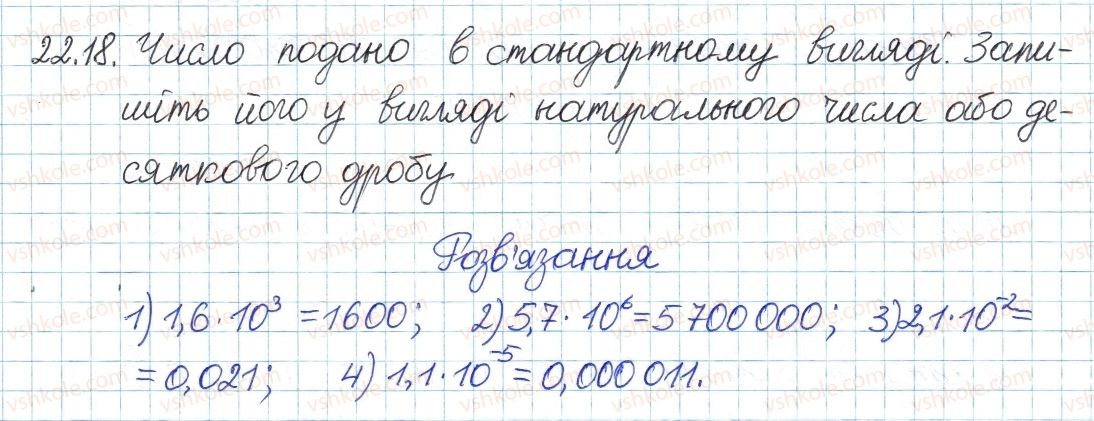 22.18. Число подано в стандартному вигляді. Запи-
шіть його у вигляді натурального числа або де-
сяткового дробу
Розв'язання
1) 1,6·10³ = 1600; 2) 5,7·10⁶ = 5 700 000; 3) 2,1·10⁻² =
= 0,021; 4) 1,1·10⁻⁵ = 0,000 011.